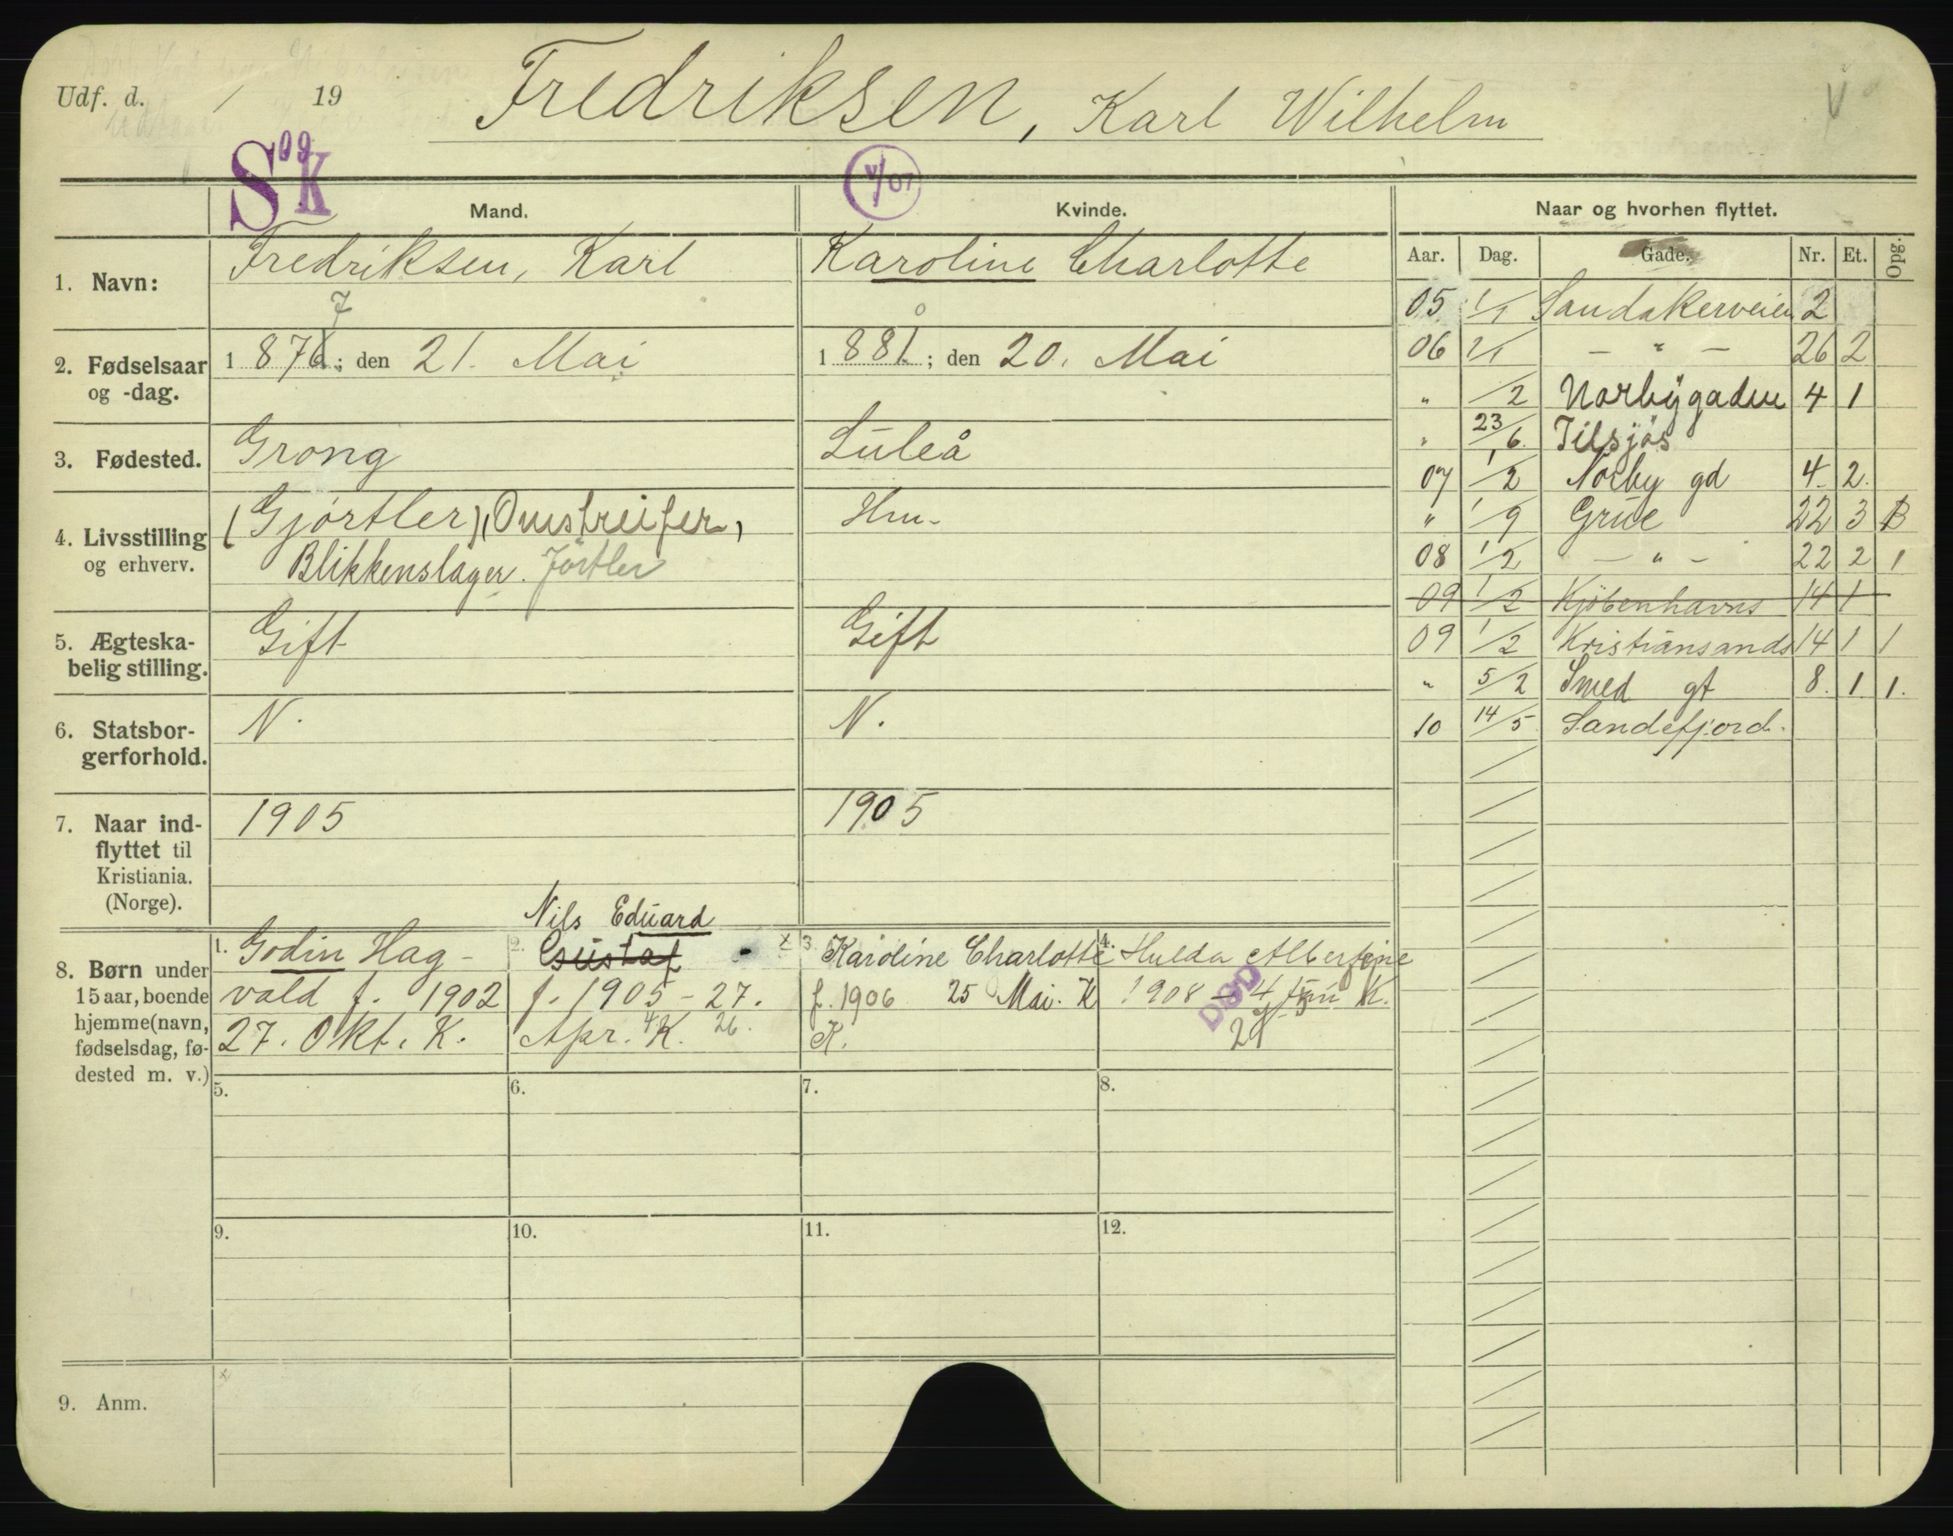 Udf. d. / 19
Fredriksen, Karl Wilhelm
V
S og K
V/07
Mand.
Kvinde.
Naar og hvorhen flyttet.
Aar. Dag. Gade. Nr. Et. Opg.
1. Navn:
Fredriksen, Karl
Karoline Charlotte
2. Fødselsaar og -dag.
7
1876; den 21. Mai
0
1881; den 20. Mai
3. Fødested.
Grong
Luleå
4. Livsstilling og erhverv.
(Gjørtler), Omstreifer,
Blikkenslager. Jørtler
Hm.
5. Ægteska-
belig stilling.
Gift
Gift
6. Statsbor-
gerforhold.
N.
N.
7. Naar ind-
flyttet til
Kristiania.
(Norge).
1905
1905
05 1/1 Sandakerveien 2
06 1/1 — " — 26 2
" /2 Norbygaden 4 1
" 23/6. Tilsjøs
07 1/2 Norby gd 4 2.
" 1/9 Grüe 22 3 B
08 1/2 — " — 22 2 1
09 1/2 Kjøbenhavns 14 1
09 1/2 Kristiansands 14 1 1
" 5/2 Smed gt 8. 1. 1.
10 14/5 Sandefjord.
8. Børn under
15 aar, boende
hjemme (navn,
fødselsdag, fø-
dested m. v.)
1. Godin Hag-
vald f. 1902
27. Okt. K.
Nils Eduard
2. Gustaf x
f. 1905 - 27.
Apr. K. 26.
3. Karoline Charlotte
f. 1906 25 Mai. K
K.
4. Hulda Albertine
1908 - 4 Juni K.
DØD
5.
6.
7.
8.
9.
10.
11.
12.
9. Anm.
x